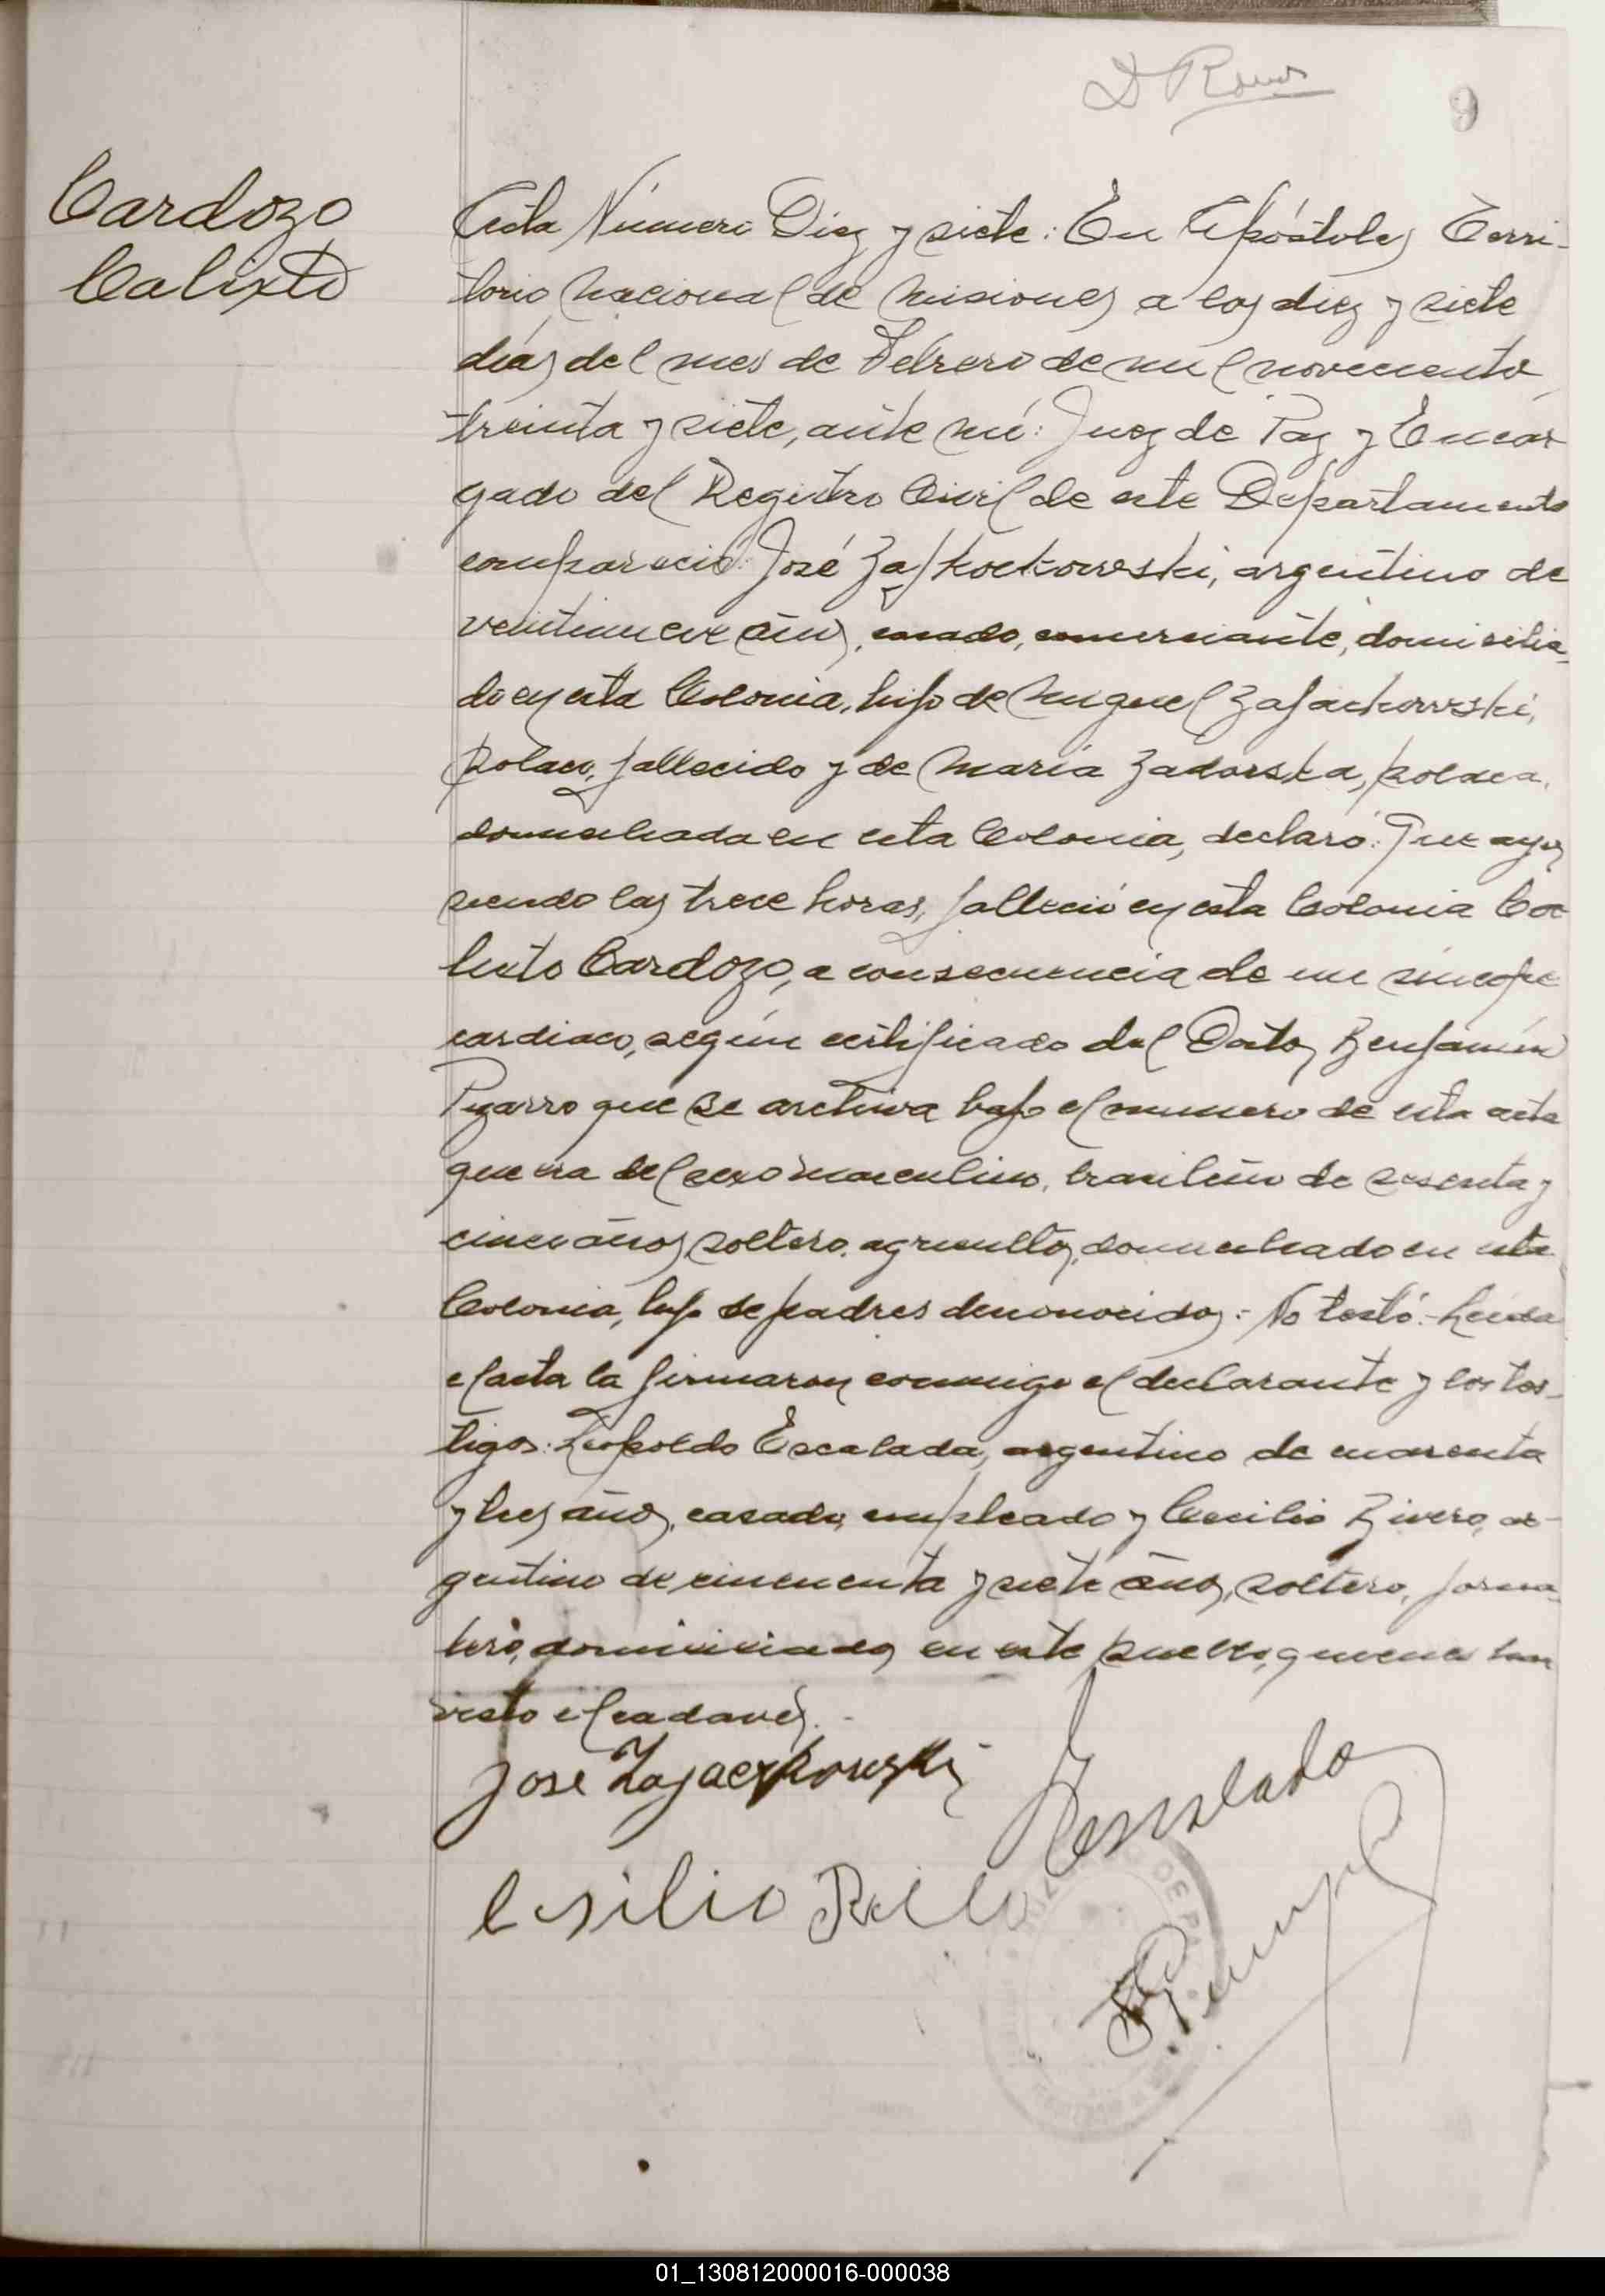 9
Cardozo
Calixto
Acta Número Diez y siete: En Apóstoles Terri-
torio Nacional de Misiones a los diez y siete
días del mes de Febrero de mil novecientos
treinta y siete, ante mí: Juez de Paz y Encar
gado del Registro Civil de este Departamento
compareció: José Zajkockowski, argentino de
veintinueve años, casado, comerciante, domicilia-
do en esta Colonia, hijo de Miguel Zajackowski,
polaco, fallecido y de María Zadorska, polaca,
domiciliada en esta Colonia, declaró: Que ayer
siendo las trece horas, falleció en esta Colonia Ca
lixto Cardozo, a consecuencia de un síncope
cardiaco, según certificado del Doctor Benjamín
Pizarro que se archiva bajo el numero de esta acta
que era del sexo masculino, brasileño de sesenta y
cinco años, soltero, agricultor, domiciliado en esta
Colonia, hijo de padres desconocidos: No testó:- Leída
el acta la firmaron conmigo el declarante y los tes-
tigos: Leopoldo Escalada, argentino de cuarenta
y tres años, casado, empleado y Cecilio Rivero, ar-
gentino de cincuenta y siete años, soltero, jorna-
lero, domiciliados en este pueblo, quienes han
visto el cadaver.-
José Zajaczkowski
Escalada